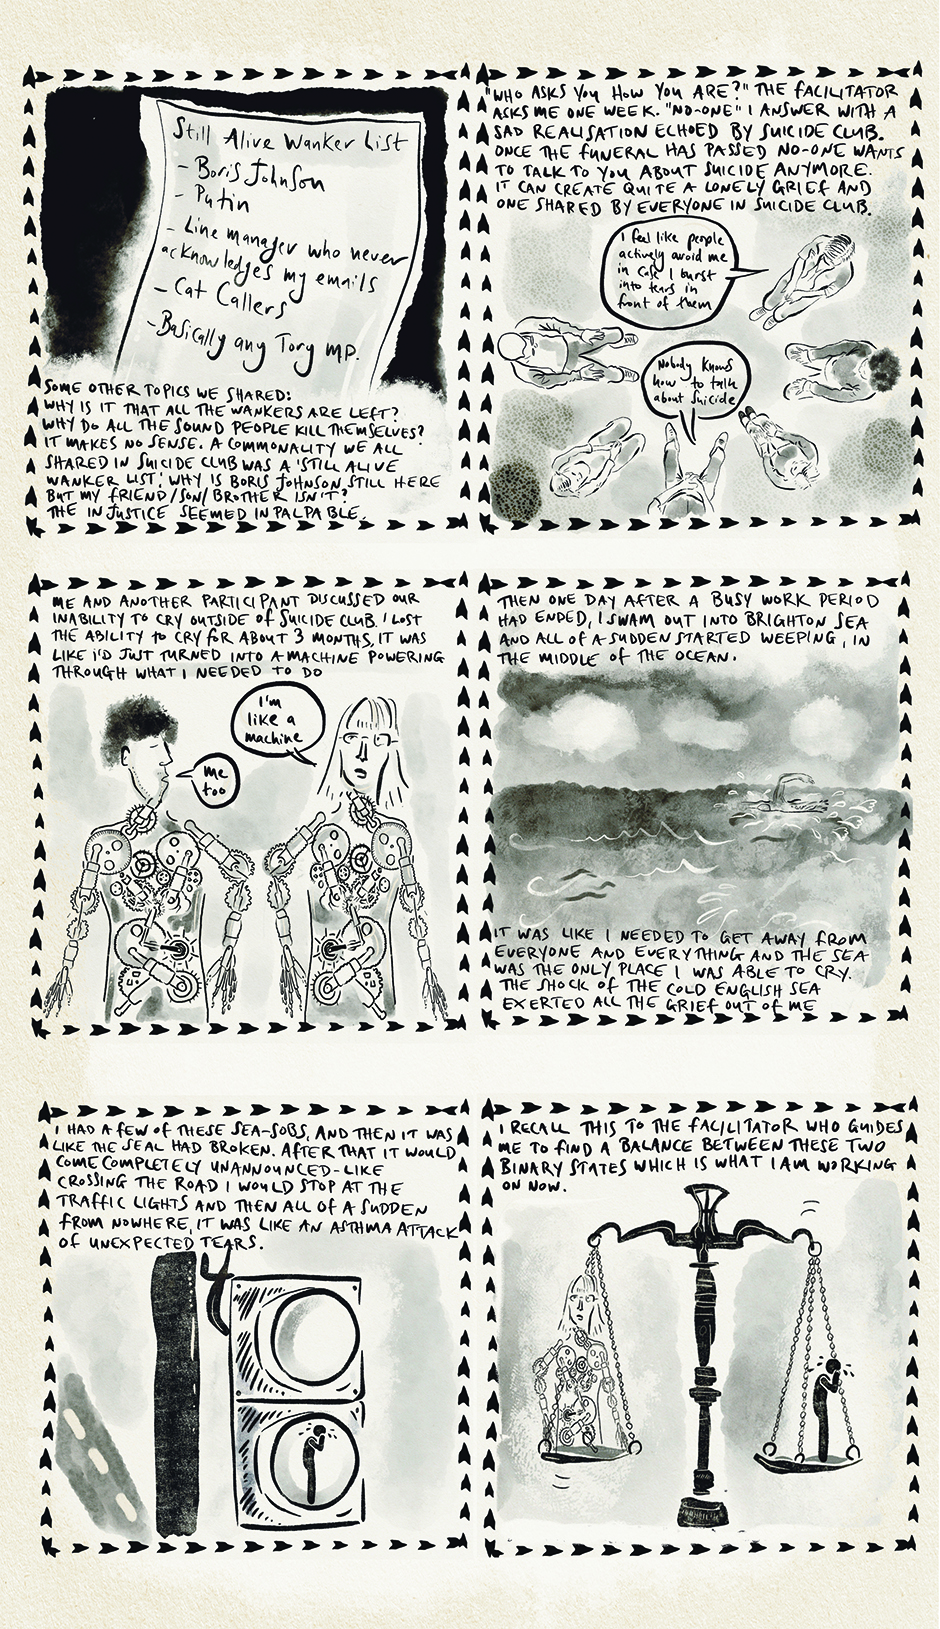 Still Alive Wanker List
- Boris Johnson
- Putin
- Line manager who never
acknowledges my emails
- Cat Callers
- Basically any Tory MP.
SOME OTHER TOPICS WE SHARED:
WHY IS IT THAT ALL THE WANKERS ARE LEFT?
WHY DO ALL THE SOUND PEOPLE KILL THEMSELVES?
IT MAKES NO SENSE. A COMMONALITY WE ALL
SHARED IN SUICIDE CLUB WAS A 'STILL ALIVE
WANKER LIST'. WHY IS BORIS JOHNSON STILL HERE
BUT MY FRIEND/SON/BROTHER ISN'T?
THE INJUSTICE SEEMED INPALPABLE.
"WHO ASKS YOU HOW YOU ARE?" THE FACILITATOR
ASKS ME ONE WEEK. "NO-ONE" I ANSWER WITH A
SAD REALISATION ECHOED BY SUICIDE CLUB.
ONCE THE FUNERAL HAS PASSED NO-ONE WANTS
TO TALK TO YOU ABOUT SUICIDE ANYMORE.
IT CAN CREATE QUITE A LONELY GRIEF AND
ONE SHARED BY EVERYONE IN SUICIDE CLUB.
I feel like people
actively avoid me
in case I burst
into tears in
front of them
Nobody knows
how to talk
about suicide
ME AND ANOTHER PARTICIPANT DISCUSSED OUR
INABILITY TO CRY OUTSIDE OF SUICIDE CLUB. I LOST
THE ABILITY TO CRY FOR ABOUT 3 MONTHS, IT WAS
LIKE I'D JUST TURNED INTO A MACHINE POWERING
THROUGH WHAT I NEEDED TO DO
I'm
like a
machine
me
too
THEN ONE DAY AFTER A BUSY WORK PERIOD
HAD ENDED, I SWAM OUT INTO BRIGHTON SEA
AND ALL OF A SUDDEN STARTED WEEPING, IN
THE MIDDLE OF THE OCEAN.
IT WAS LIKE I NEEDED TO GET AWAY FROM
EVERYONE AND EVERYTHING AND THE SEA
WAS THE ONLY PLACE I WAS ABLE TO CRY.
THE SHOCK OF THE COLD ENGLISH SEA
EXERTED ALL THE GRIEF OUT OF ME
I HAD A FEW OF THESE SEA-SOBS, AND THEN IT WAS
LIKE THE SEAL HAD BROKEN. AFTER THAT IT WOULD
COME COMPLETELY UNANNOUNCED - LIKE
CROSSING THE ROAD I WOULD STOP AT THE
TRAFFIC LIGHTS AND THEN ALL OF A SUDDEN
FROM NOWHERE, IT WAS LIKE AN ASTHMA ATTACK
OF UNEXPECTED TEARS.
I RECALL THIS TO THE FACILITATOR WHO GUIDES
ME TO FIND A BALANCE BETWEEN THESE TWO
BINARY STATES WHICH IS WHAT I AM WORKING
ON NOW.